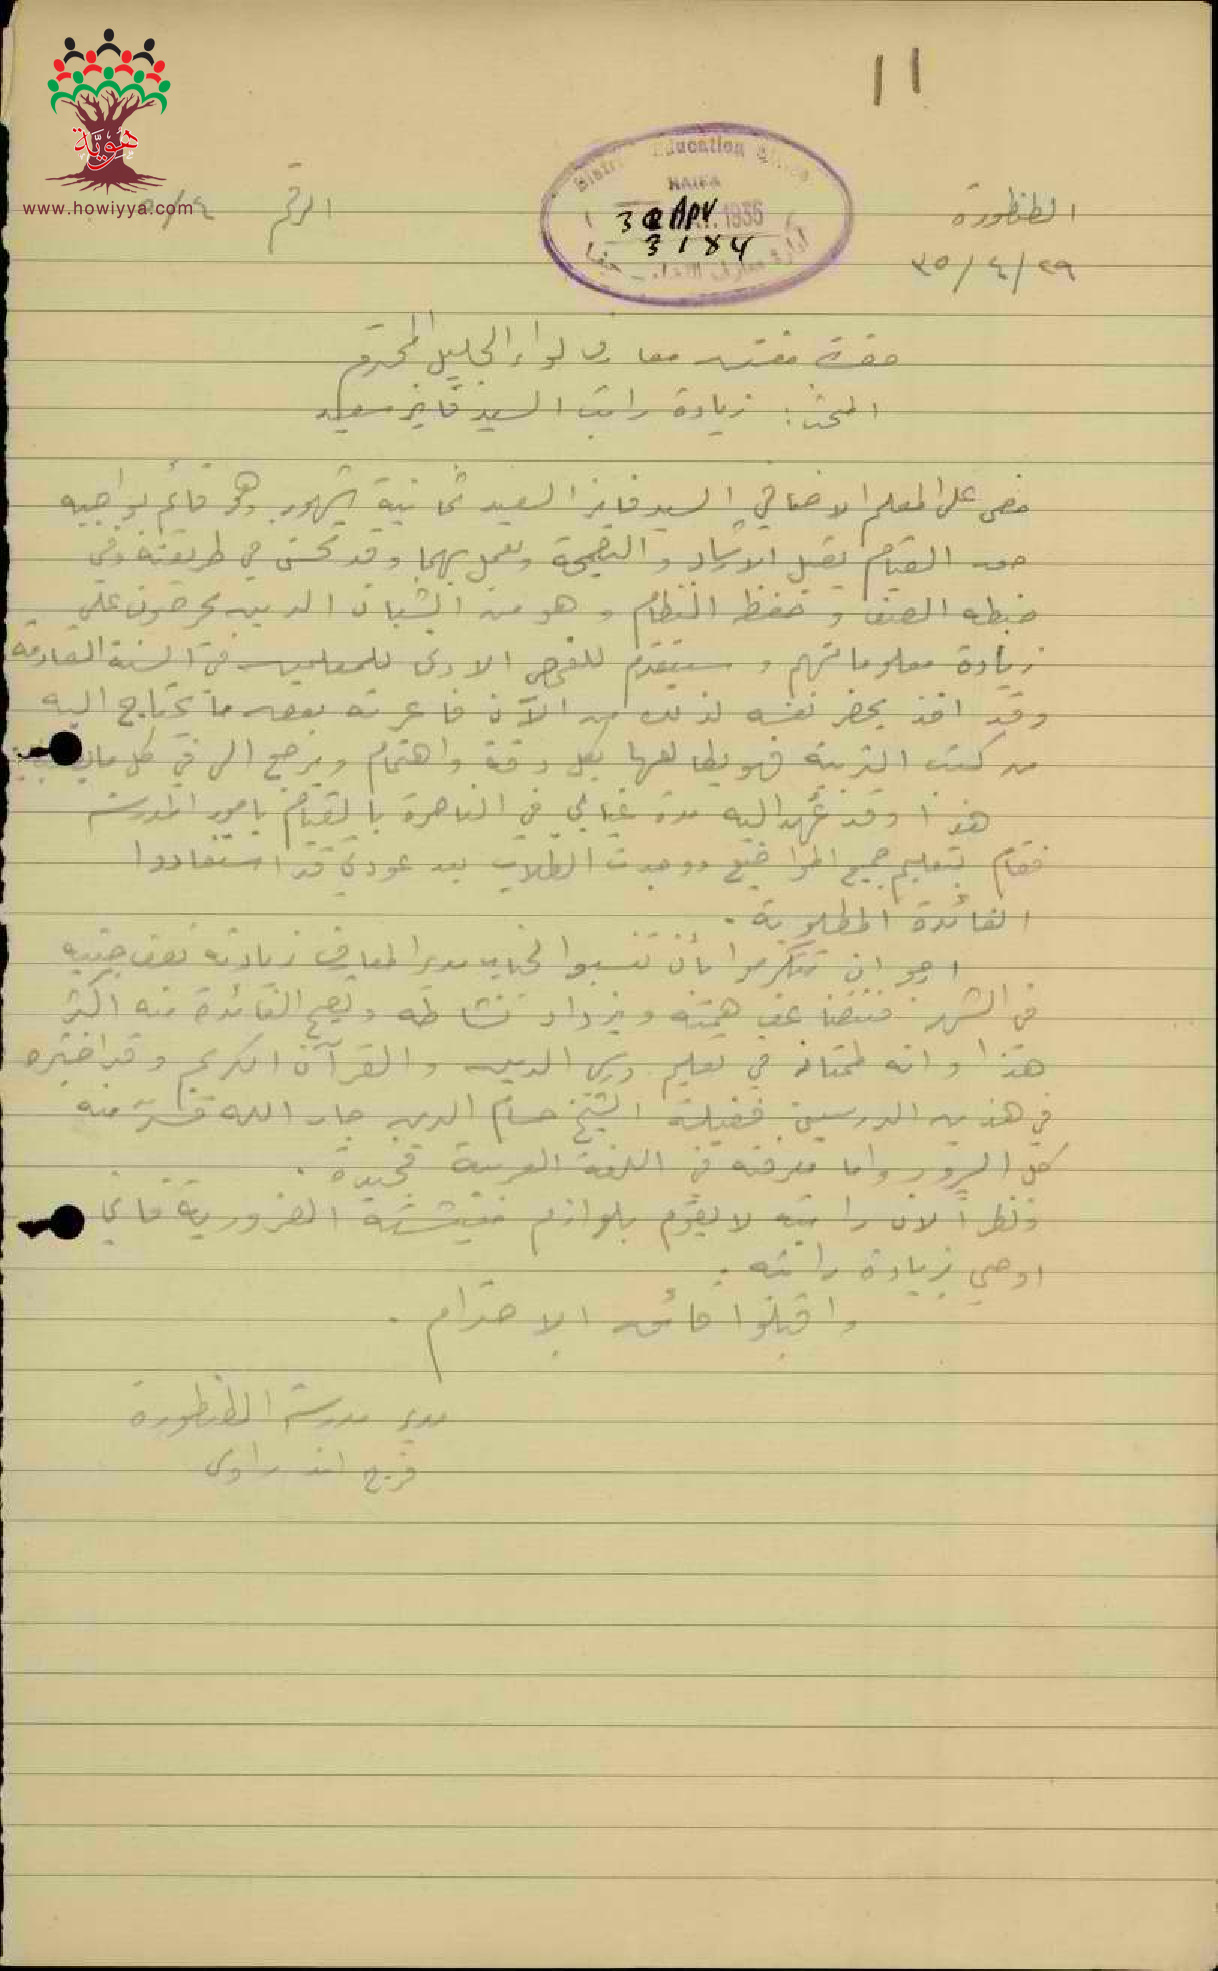 11
هوية
www.howiyya.com
District Education Office
HAIFA
30 Apr. 1935
3184
ادارة معارف اللواء - حيفا
الطنطورة
الرقم
٢٩/٤/٣٥
حضرة مفتش معارف لواء الجليل المحترم
البحث: زيادة راتب السيد فايز سعيد
مضى على المعلم الاضافي السيد فايز السعيد ثمانية شهور وهو قائم بواجبه
حق القيام يقبل الارشاد والنصيحة ويعمل بهما وقد تحسن في طريقته وفي
ضبطه الصف وحفظ النظام وهو من الشبان الذين يحرصون على
زيادة معلوماتهم وسيتقدم للفحص الادنى للمعلمين في السنة القادمة
وقد اخذ يحضر نفسه لذلك من الآن فاعرته بعض ما يحتاج اليه
من كتب التربية فهو يطالعها بكل دقة واهتمام ويرجع الي في كل ما
هذا وقد عهد اليه مدة غيابي في الناصرة بالقيام بامور المدرسة
فقام بتعليم جميع المواضيع ووجدت الطلاب بعد عودتي قد استفادوا
الفائدة المطلوبة.
ارجو ان تتكرموا بأن تنسبوا لجناب مدير المعارف زيادته نصف جنيه
في الشهر فتتضاعف همته ويزداد نشاطه وتصبح الفائدة منه اكثر
هذا وانه ممتاز في تعليم درسي الدين والقرآن الكريم وقد اختبره
في هذين الدرسين فضيلة الشيخ حسام الدين جار الله فسر منه
كل السرور واما معرفته في اللغة العربية فجيدة.
ونظراً لان راتبه لا يقوم بلوازم معيشته الضرورية فاني
اوصي بزيادة راتبه.
واقبلوا فائق الاحترام.
مدير مدرسة الطنطورة
فرح اندراوس